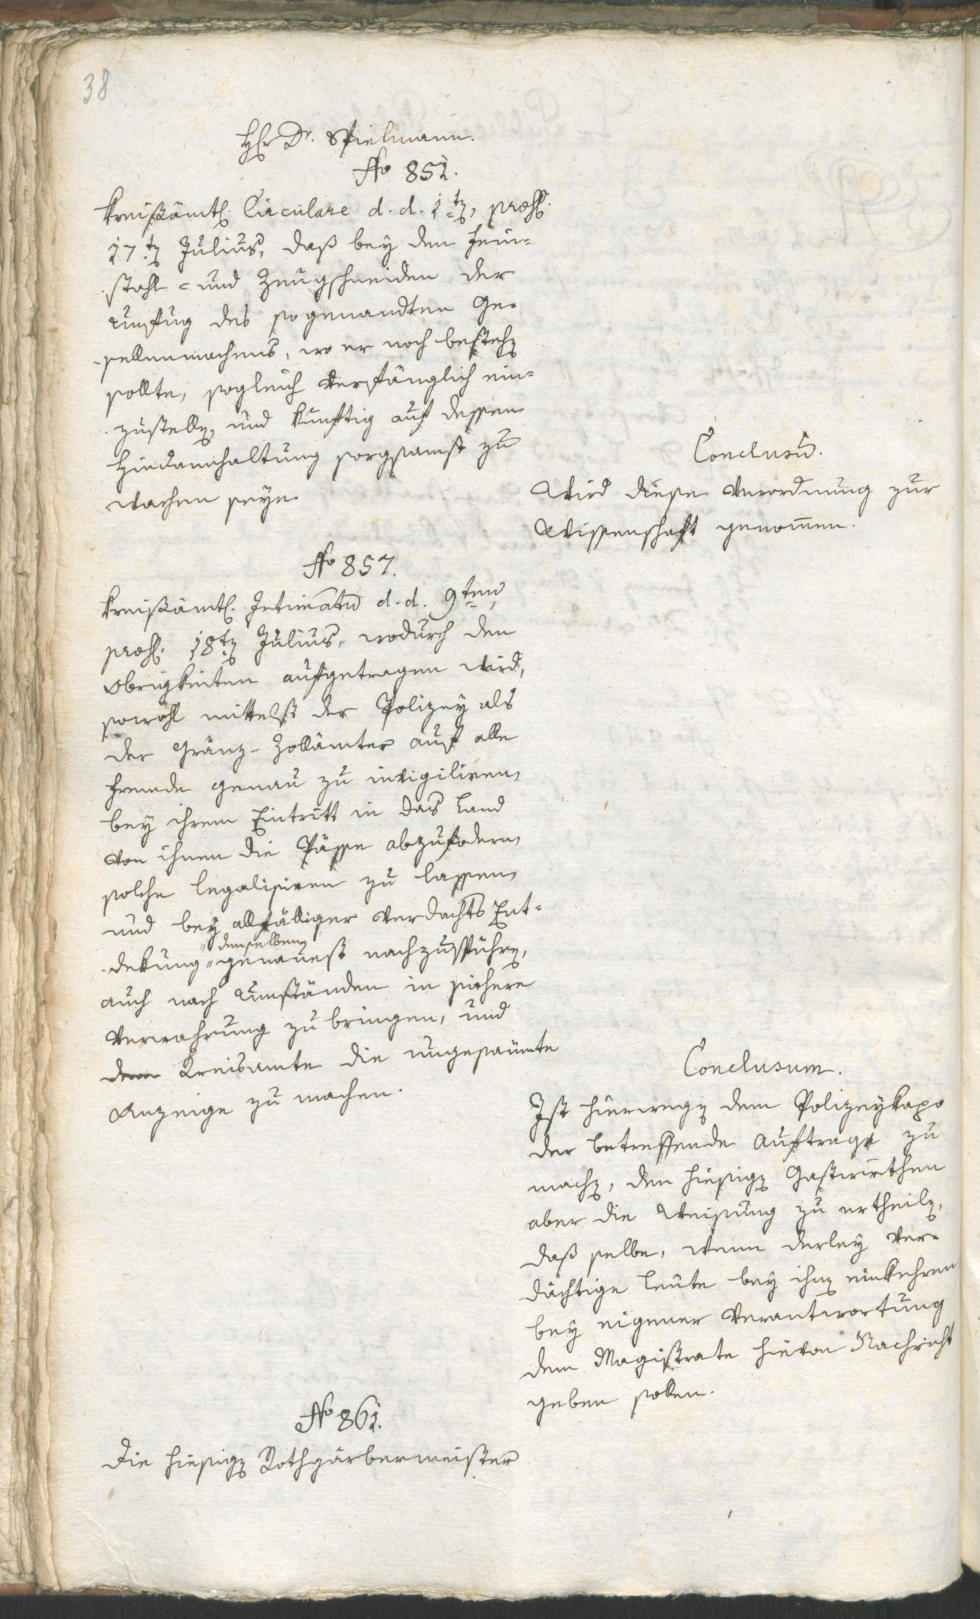 38
H͞r Dr. Spielmann.
No 851.
Kreisämtl. Circulare d. d. 1ten, præs.
17ten Julius, daß bey den Fein=
stahl = und Zeugschmeiden der
Unfug des so genandten Ge=
sellenmachens, wo er noch bestehen
sollte, sogleich verfänglich ein=
zustellen, und künftig auf dessen
Hindannhaltung sorgsamst zu
wachen seye.
Conclusum.
Wird diese Verordnung zur
Wissenschaft genommen.
No 857.
Kreisämtl. Intimatum d. d. 9ten,
præs. 18ten Julius, wodurch den
Obrigkeiten aufgetragen wird,
sowohl mittelst der Polizey als
der Gränz-Zollämter auf alle
Fremde genau zu invigiliren,
bey ihrem Eintritt in das Land
von ihnen die Pässe abzufodern,
solche legalisiren zu lassen,
und bey allfälliger Verdachts Ent=
deckung denselben genauest nachzuspühren,
auch nach Umständen in sichere
Verwahrung zu bringen, und
dem Kreisamte die ungesäumte
Anzeige zu machen.
Conclusum.
Ist hierwegen dem Polizeykapo
der betreffende Auftrage zu
machen, den hiesigen Gastwirthen
aber die Weisung zu ertheilen,
daß selbe, wenn derley Ver=
dächtige Leute bey ihnen einkehren
bey eigener Verantwortung
dem Magistrate hievon Nachricht
geben sollen.
No 861.
Die hiesigen Rothgärbermeister